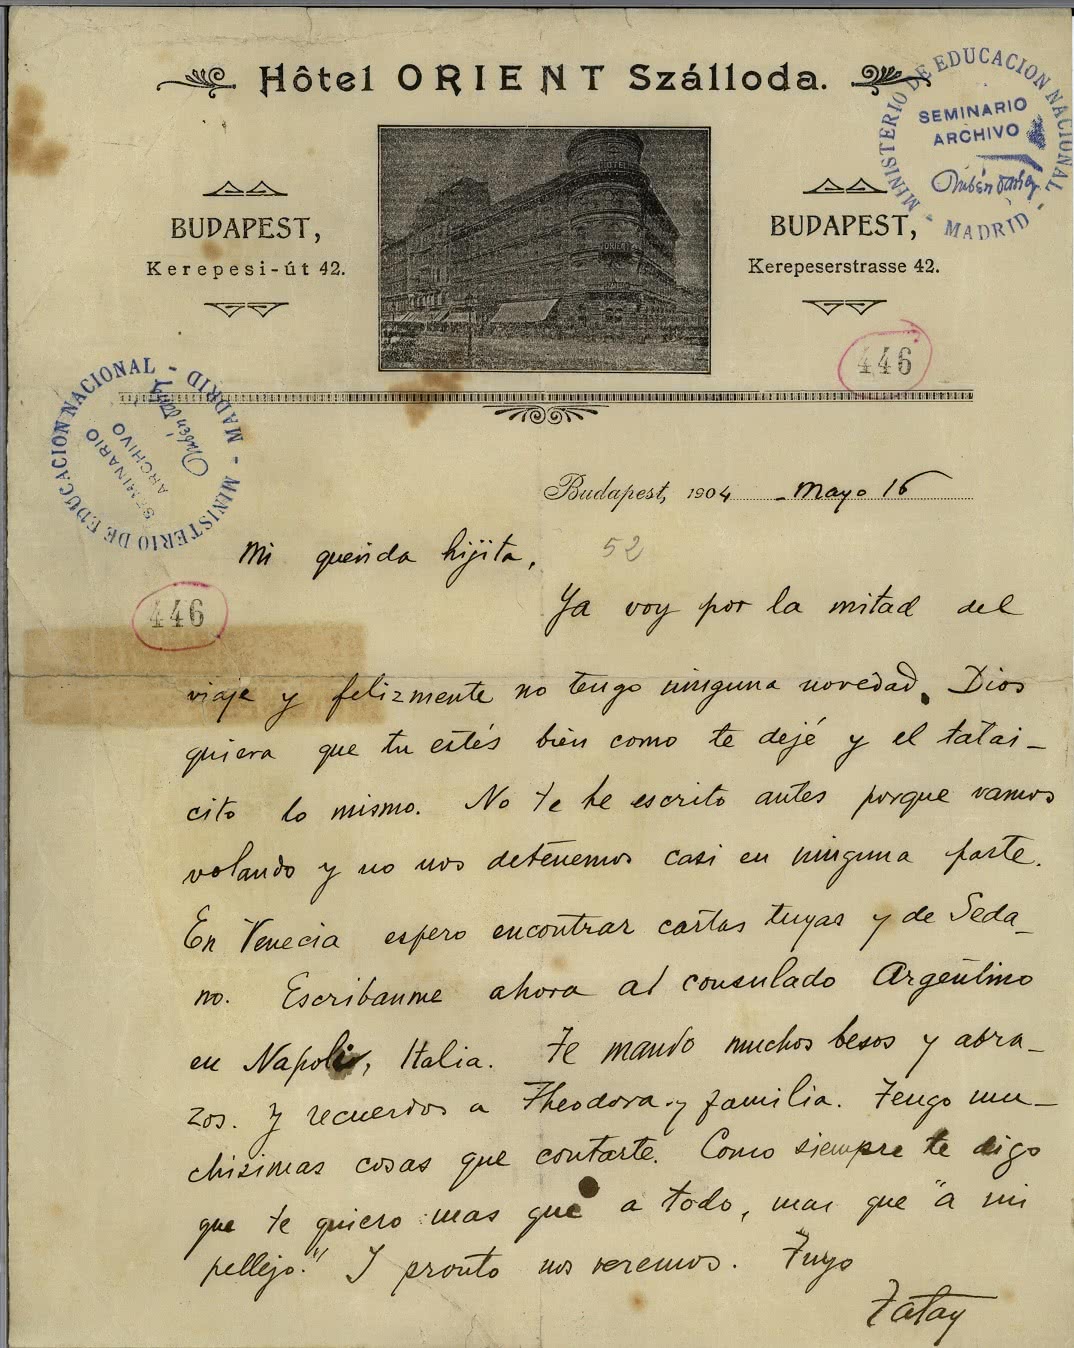 Hôtel ORIENT Szálloda.
HOTEL
ORIENT
BUDAPEST,
Kerepesi-út 42.
BUDAPEST,
Kerepeserstrasse 42.
MINISTERIO DE EDUCACION NACIONAL - MADRID -
SEMINARIO
ARCHIVO
Rubén Darío
446
MINISTERIO DE EDUCACION NACIONAL - MADRID -
SEMINARIO
ARCHIVO
Rubén Darío
Budapest, 1904 - Mayo 16
Mi querida hijita,
52
Ya voy por la mitad del
446
viaje y felizmente no tengo ninguna novedad. Dios
quiera que tu estés bien como te dejé y el tatai-
cito lo mismo. No te he escrito antes porque vamos
volando y no nos detenemos casi en ninguna parte.
En Venecia espero encontrar cartas tuyas y de Seda-
no. Escribanme ahora al consulado Argentino
en Napoli, Italia. Te mando muchos besos y abra-
zos. Y recuerdos a Theodora y familia. Tengo mu-
chisimas cosas que contarte. Como siempre te digo
que te quiero mas que a todo, mas que "a mi
pellejo." Y pronto nos veremos. Tuyo
Tatay